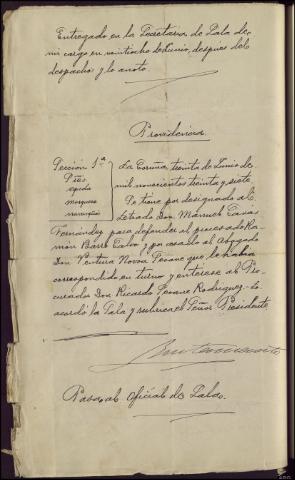 Entregado en la Secretaria de Sala de
mi cargo en veintiocho de Junio, despues del
despacho y lo anoto.
Providencia
Sección 1ª
Sres
La Coruña treinta de Junio de
mil novecientos treinta y siete
Se tiene por designado al
Letrado Don Manuel Casas
Fernández para defender al procesado Ra-
món Barro Calvo y por cesado al Abogado
Don Ventura Novoa Seoane que le habia
correspondido en turno y enterese al Pro-
curador Don Ricardo Seoane Rodriguez. Lo
acordó la Sala y rubrica el Señor Presidente
Pasó al Oficial de Sala.